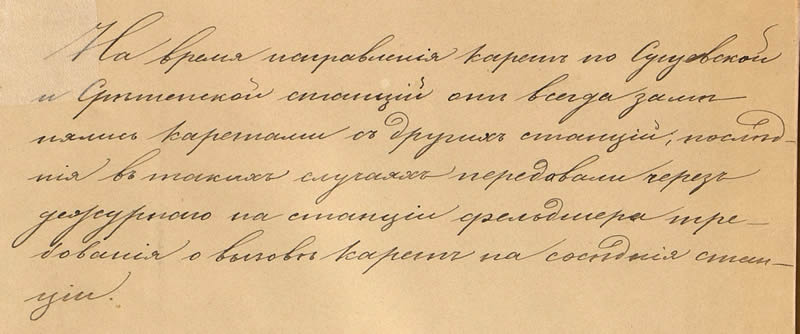 На время исправленія каретъ по Сущевской
и Срѣтенской станцій онѣ всегда замѣ
нялись каретами съ другихъ станцій; послѣд-
нія въ такихъ случаяхъ передавали черезъ
дежурнаго на станціи фельдшера тре-
бованія о вызовѣ каретъ на сосѣднія стан-
ціи.